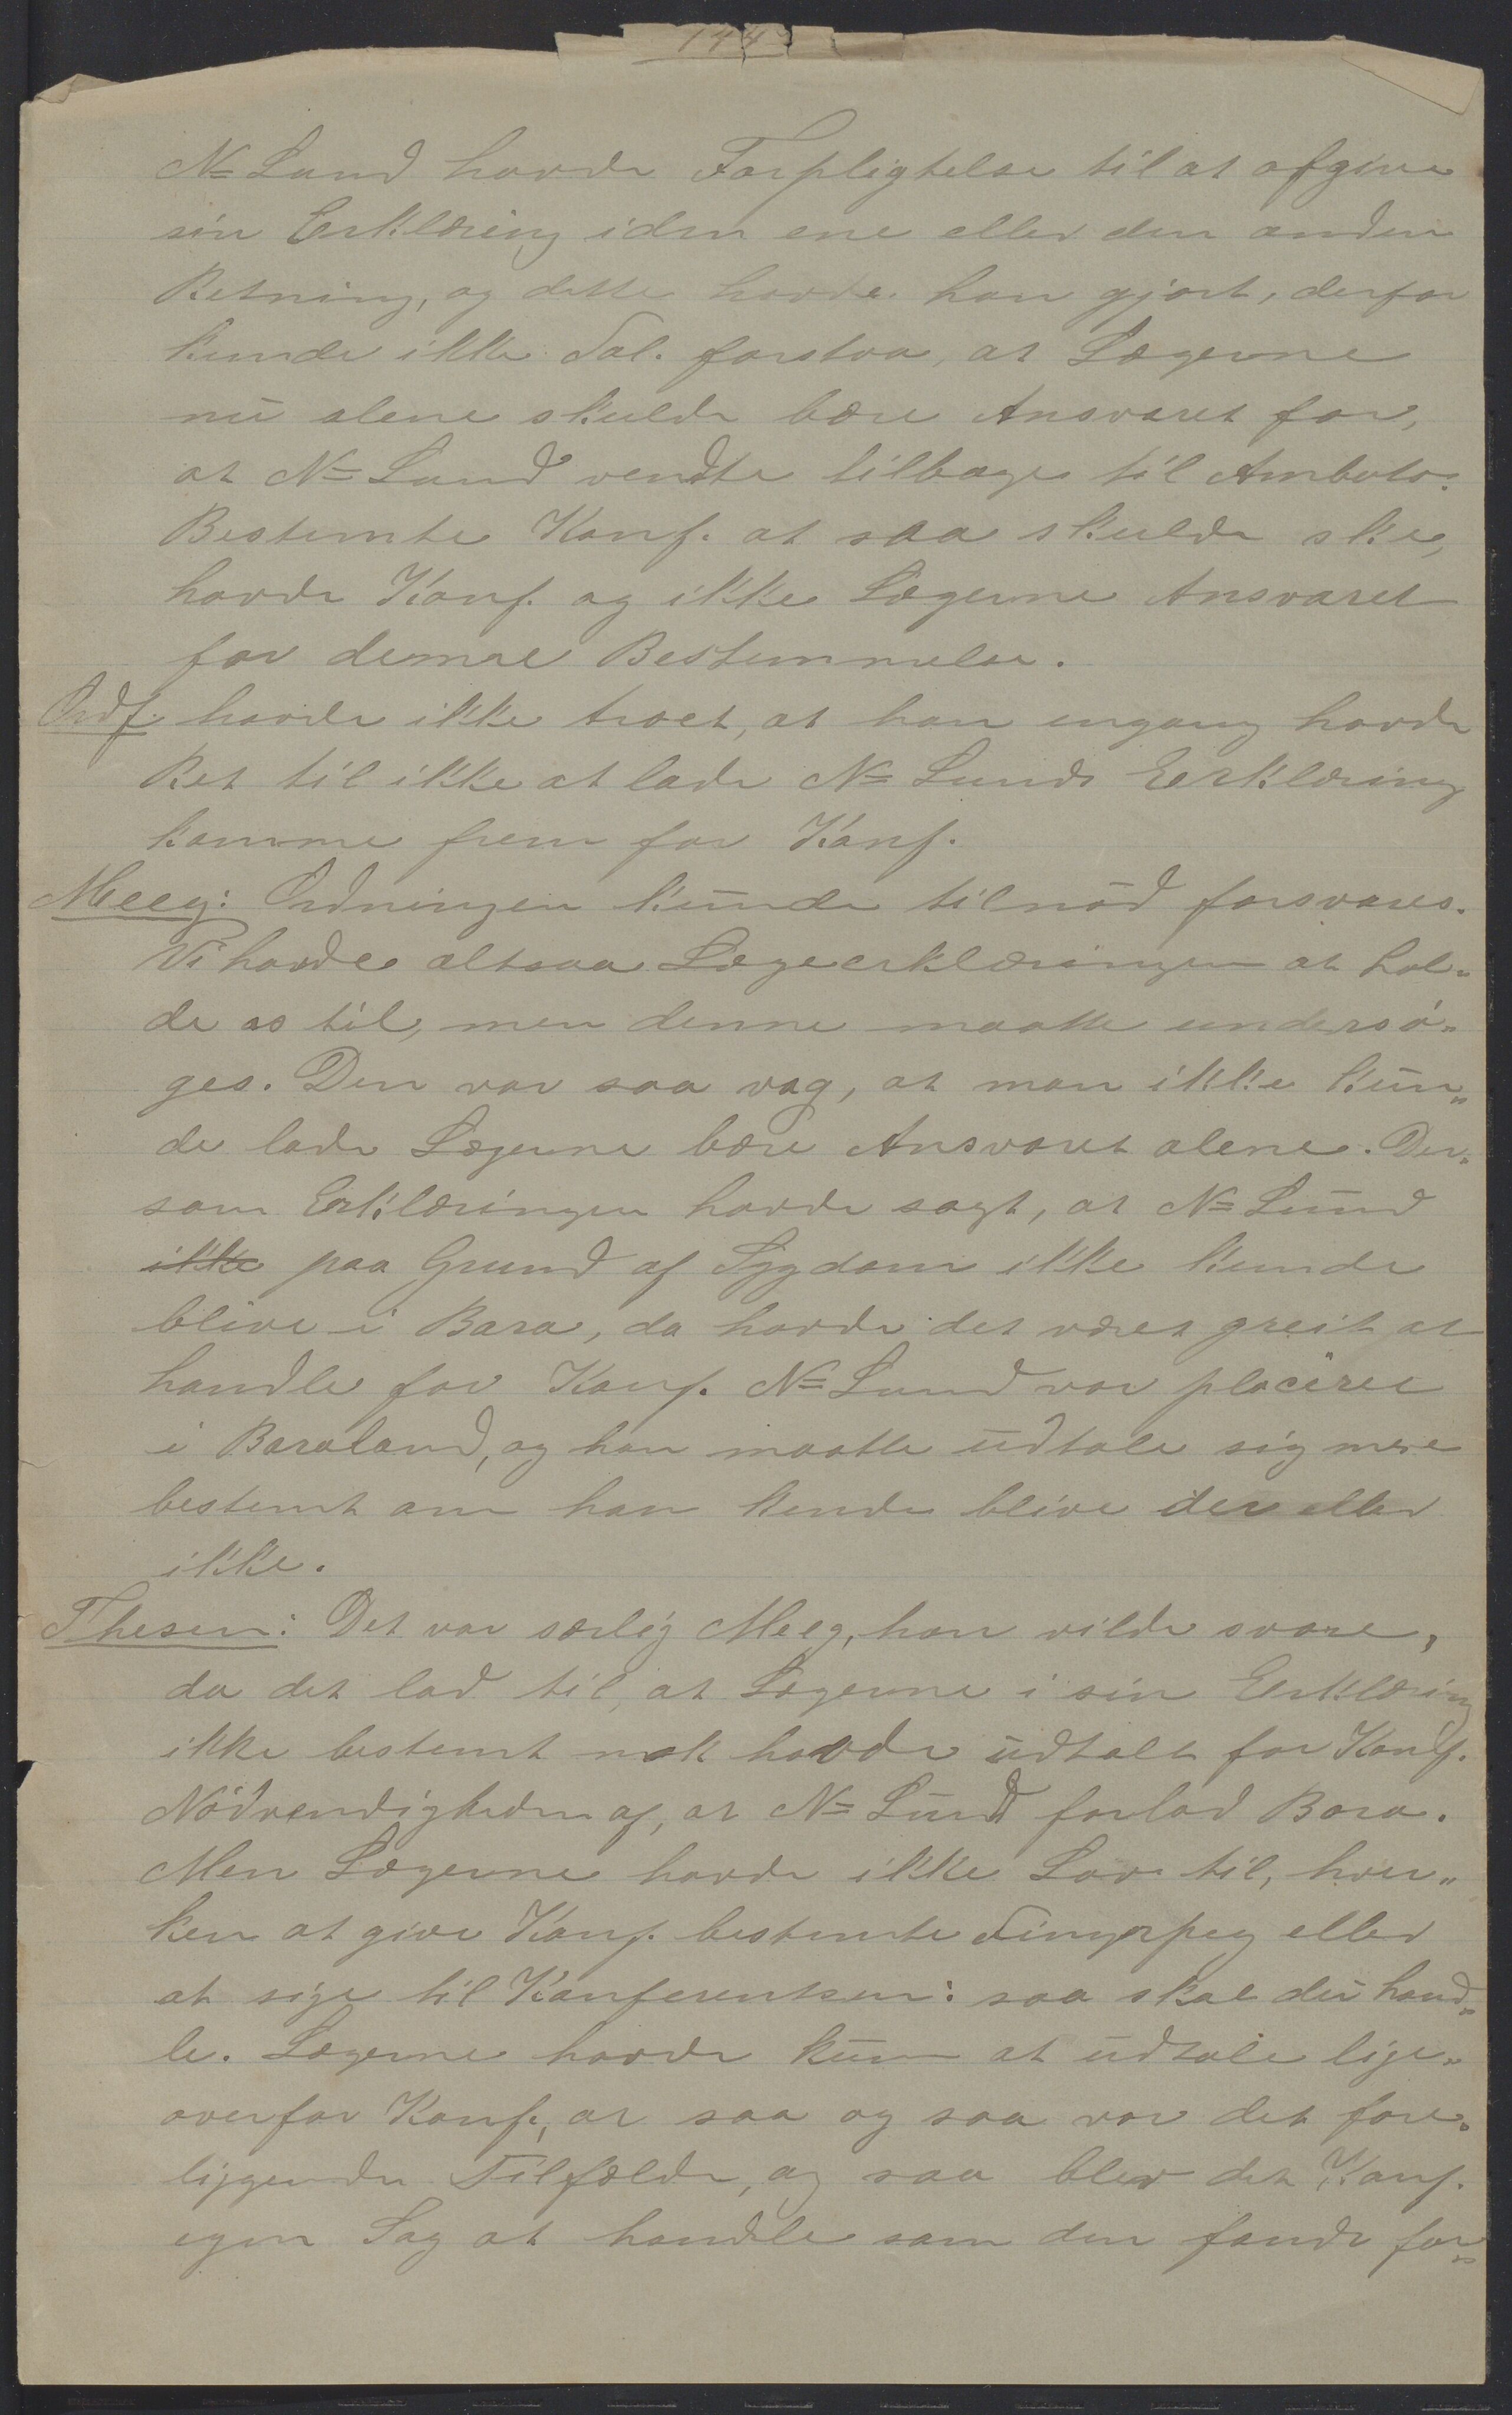 144
N= Lund havde Forpligtelse til at afgive
sin Erklæring i den ene eller den anden
Retning, og dette havde han gjort, derfor
kunde ikke Tal. forstaa, at Lægerne
nu alene skulde bære Ansvaret for,
at N= Lund vendte tilbage til Amboto.
Bestemte Konf. at saa skulde ske,
havde Konf. og ikke Lægerne Ansvaret
for denne Bestemmelse.
Ordf. havde ikke troet, at han engang havde
Ret til ikke at lade N= Lunds Erklæring
komme frem for Konf.
Meeg: Ordningen kunde tilnød forsvares.
Vi havde altsaa Lægeerklæringen at hol„
de os til, men denne maatte undersø„
ges. Den var saa vag, at man ikke kun„
de lade Lægerne bære Ansvaret alene. Der„
som Erklæringen havde sagt, at N= Lund
ikke paa Grund af Sygdom ikke kunde
blive i Bara, da havde det været greit at
handle for Konf. N= Lund var placeret
i Baraland, og han maatte udtale sig mere
bestemt om han kunde blive der eller
ikke.
Thesen: Det var særlig Meeg, han vilde svare,
da det lod til, at Lægerne i sin Erklæring
ikke bestemt nok havde udtalt for Konf.
Nödvendigheden af, at N= Lund forlod Bara.
Men Lægerne havde ikke Lov til, hver„
ken at give Konf. bestemte Fingerpeg eller
at sige til Konferentsen: saa skal du hand„
le. Lægerne havde kun at udtale lige„
overfor Konf., at saa og saa var det fore„
liggende Tilfælde, og saa blev det Konf.
egen Sag at handle som den fandt for„